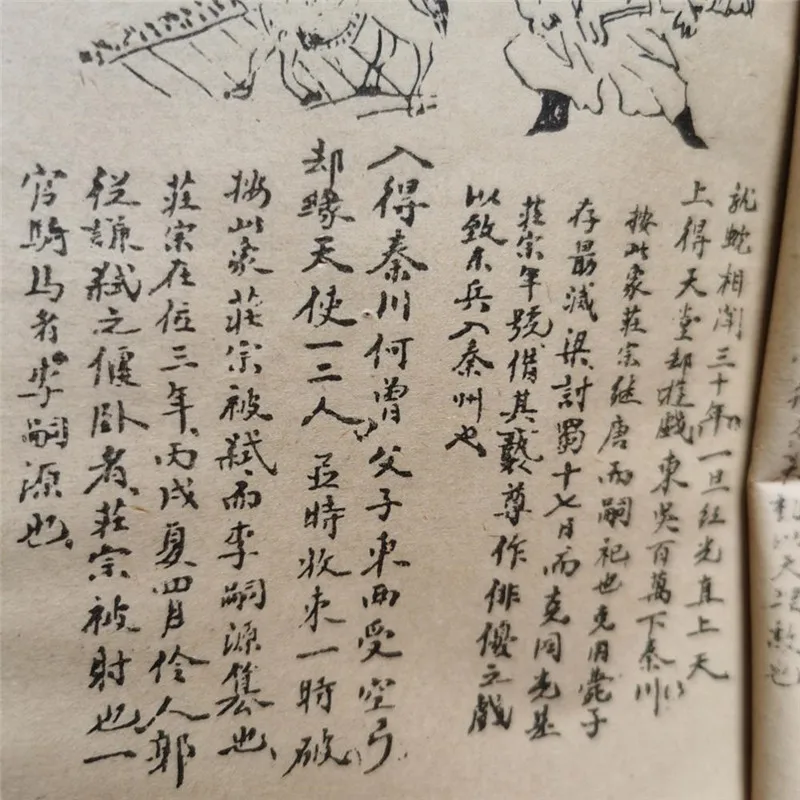 就蛇相閗三十年一旦红光直上天
上得天堂却戯東吳百萬下秦川
按此象莊宗继唐而嗣祀也克用薨子
存最滅梁討蜀十七日而克同光是
莊宗年號借其褻尊作俳優之戲
以致東兵入秦州也
入得秦川何曾父子東西受空弓
却緣天使一二人丑時收束一時破
按此象莊宗被弒而李嗣源篡也、
莊宗在位三年、丙戌夏四月伶人郭
從謙弒之偃卧者、莊宗被射也一
官騎馬者李嗣源也。